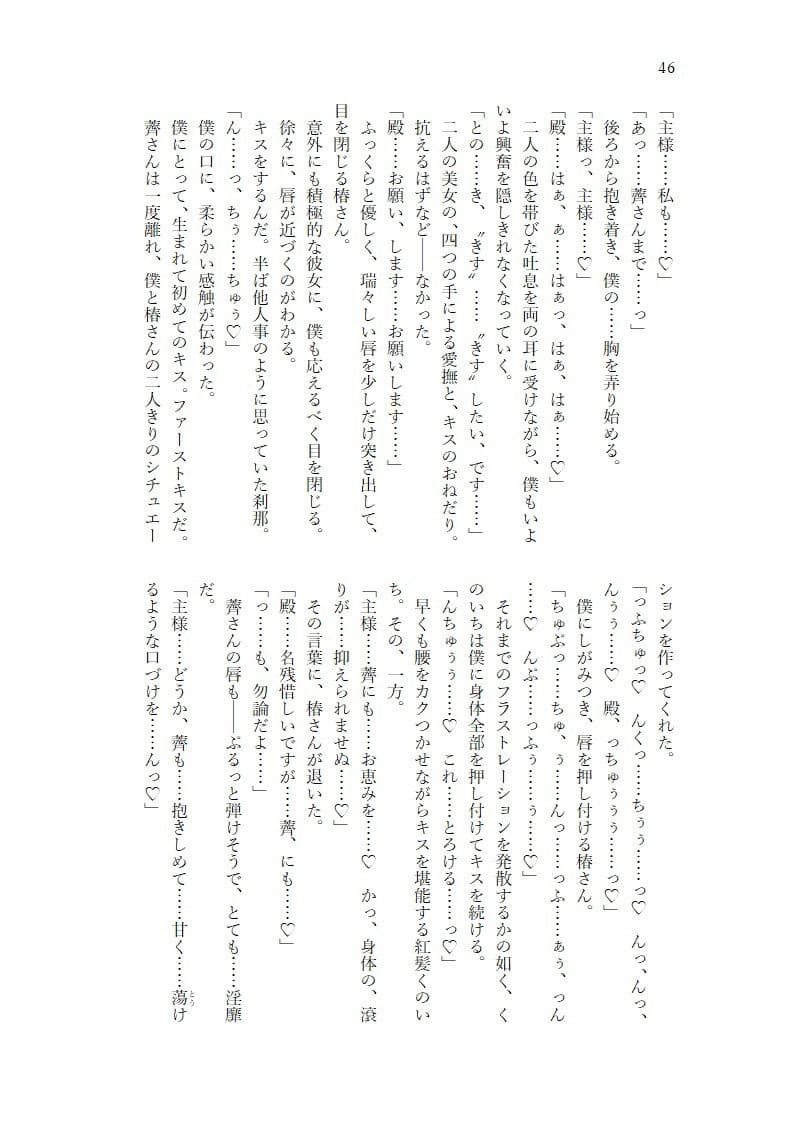 46
「主様……私も……♡」
「あっ……薺さんまで……っ」
後ろから抱き着き、僕の……胸を弄り始める。
「主様っ、主様……♡」
「殿……はぁ、ぁ……はぁっ、はぁ、はぁ……♡」
二人の色を帯びた吐息を両の耳に受けながら、僕もいよ
いよ興奮を隠しきれなくなっていく。
「との……き、〝きす〟……〝きす〟したい、です……」
二人の美女の、四つの手による愛撫と、キスのおねだり。
抗えるはずなど――なかった。
「殿……お願い、します……お願いします……」
ふっくらと優しく、瑞々しい唇を少しだけ突き出して、
目を閉じる椿さん。
意外にも積極的な彼女に、僕も応えるべく目を閉じる。
徐々に、唇が近づくのがわかる。
キスをするんだ。半ば他人事のように思っていた刹那。
「ん……っ、ちぅ……ちゅぅ♡」
僕の口に、柔らかい感触が伝わった。
僕にとって、生まれて初めてのキス。ファーストキスだ。
薺さんは一度離れ、僕と椿さんの二人きりのシチュエー
ションを作ってくれた。
「っふちゅっ♡　んくっ……ちぅぅ……っ♡　んっ、んっ、
んぅぅ……♡　殿、っちゅぅぅぅ……っ♡」
僕にしがみつき、唇を押し付ける椿さん。
「ちゅぷっ……ちゅ、ぅ……んっ……っふ……ぁぅ、っん
……♡　んぷ……っふぅ……ぅ……♡」
それまでのフラストレーションを発散するかの如く、く
のいちは僕に身体全部を押し付けてキスを続ける。
「んちゅぅぅ……♡　これ……とろける……っ♡」
早くも腰をカクつかせながらキスを堪能する紅髪くのい
ち。その、一方。
「主様……薺にも……お恵みを……♡　かっ、身体の、滾
りが……抑えられませぬ……♡」
その言葉に、椿さんが退いた。
「殿……名残惜しいですが……薺、にも……♡」
「っ……も、勿論だよ……」
薺さんの唇も――ぷるっと弾けそうで、とても……淫靡
だ。
「主様……どうか、薺も……抱きしめて……甘く……蕩け
とう
るような口づけを……んっ♡」